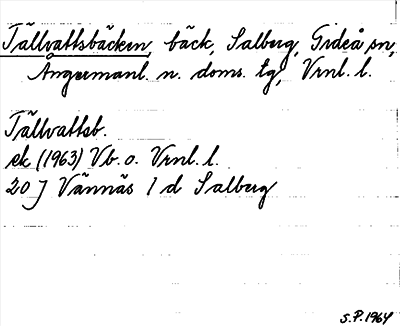 Tällvattsbäcken, bäck, Salberg, Gideå sn,
Ångermanl. n. doms. tg, Vrnl. l.
Tällvattsb.
ek (1963) Vb. o. Vrnl. l.
20 J Vännäs 1 d Salberg
S.P. 1964